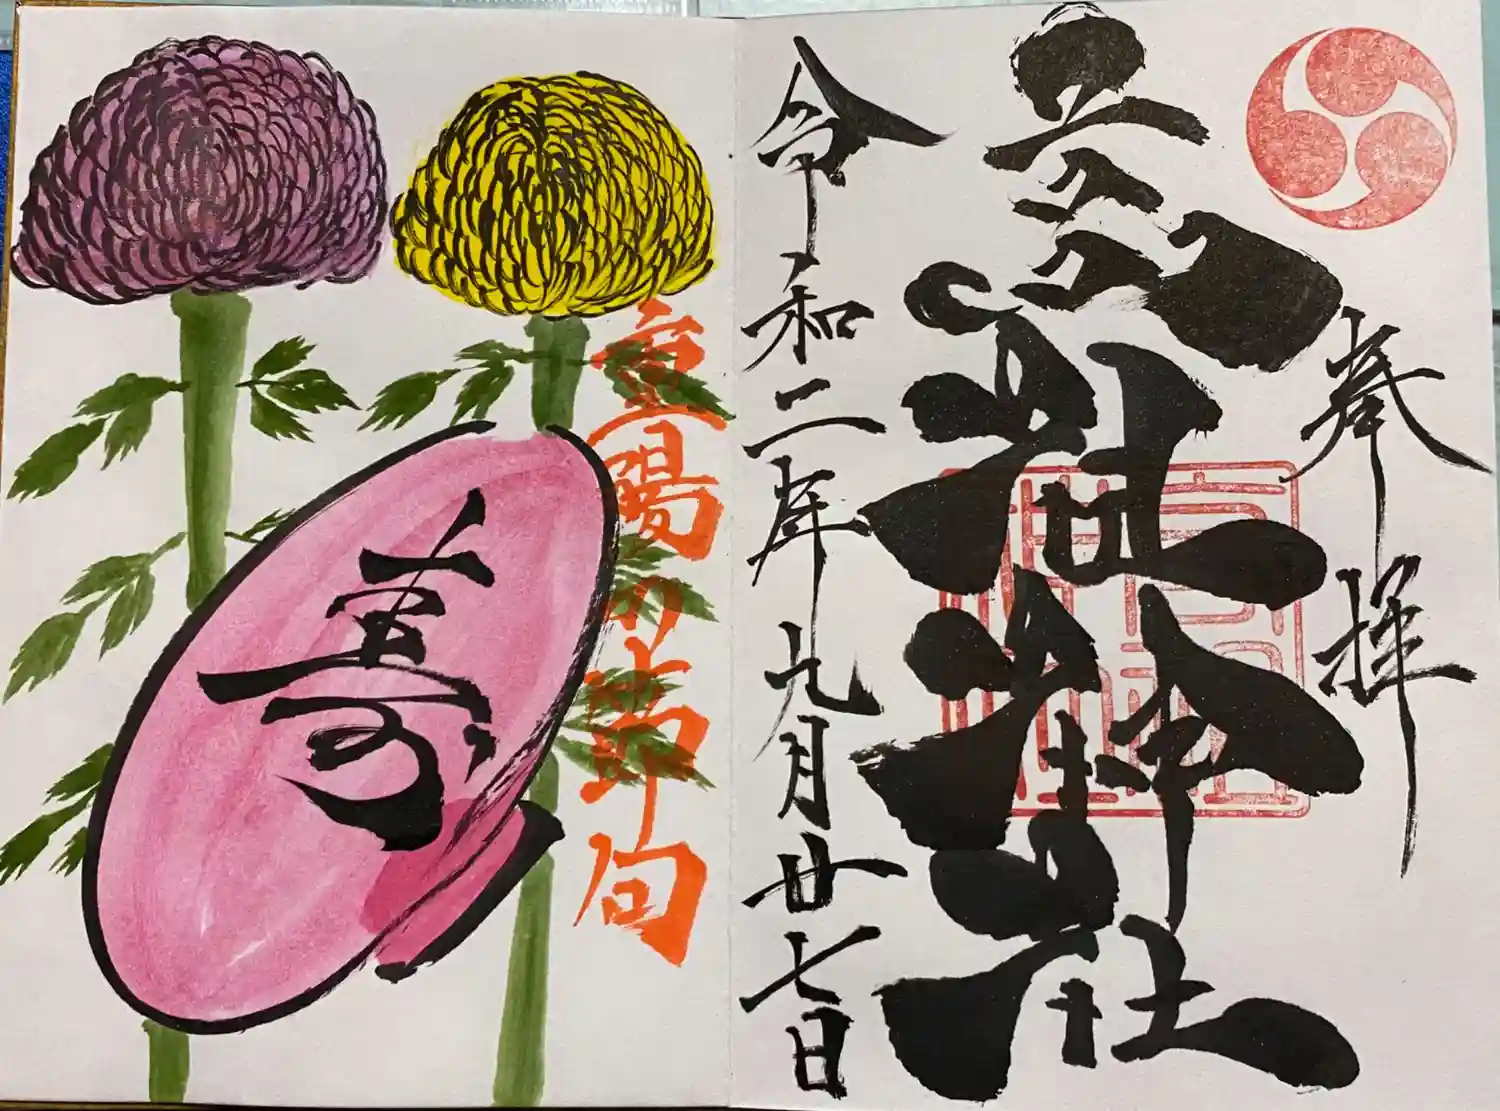 奉拝
社神社
令和二年九月廿七日
重陽の節句
寿